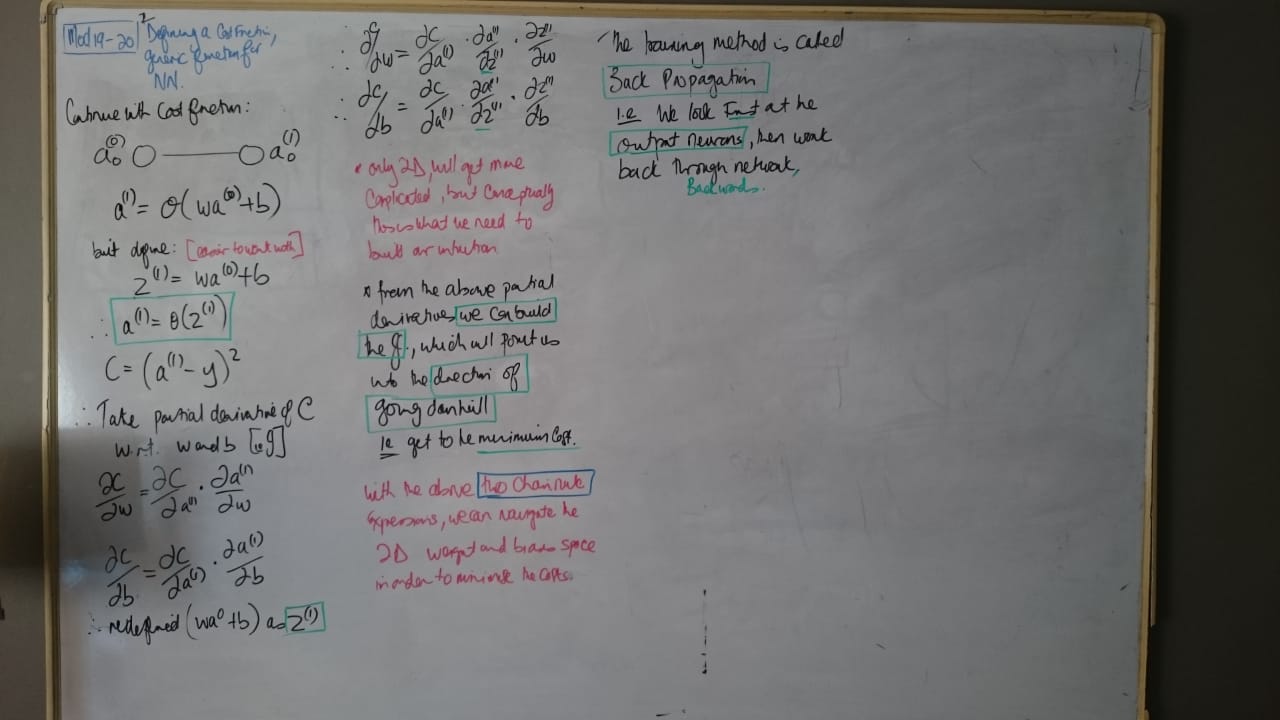 Mod 19-20
2 Defining a Cost Function,
generic function for
NN.
Continue with Cost function:
a₀⁽⁰⁾ a₀⁽¹⁾
a⁽¹⁾ = σ(wa⁽⁰⁾+b)
but define: [easier to work with]
z⁽¹⁾ = wa⁽⁰⁾+b
∴ a⁽¹⁾ = σ(z⁽¹⁾)
C = (a⁽¹⁾ - y)²
∴ Take partial derivative of C
w.r.t. w and b
∂C/∂w = ∂C/∂a⁽¹⁾ · ∂a⁽¹⁾/∂w
∂C/∂b = ∂C/∂a⁽¹⁾ · ∂a⁽¹⁾/∂b
∴ redefined (wa⁰+b) as z⁽¹⁾
∴ ∂C/∂w = ∂C/∂a⁽¹⁾ · ∂a⁽¹⁾/∂z⁽¹⁾ · ∂z⁽¹⁾/∂w
∴ ∂C/∂b = ∂C/∂a⁽¹⁾ · ∂a⁽¹⁾/∂z⁽¹⁾ · ∂z⁽¹⁾/∂b
* only 2D, will get more
Complicated, but Conceptually
this is what we need to
built an intuition
* from the above partial
derivatives we can build
the J, which will point us
into the direction of
going downhill
ie get to the minimum Cost.
with the above two Chain rule
expressions, we can navigate the
2D weight and bias space
in order to minimise the costs.
The training method is called
Back Propagation
i.e We look First at the
output neurons, then work
back through network,
Backwards.